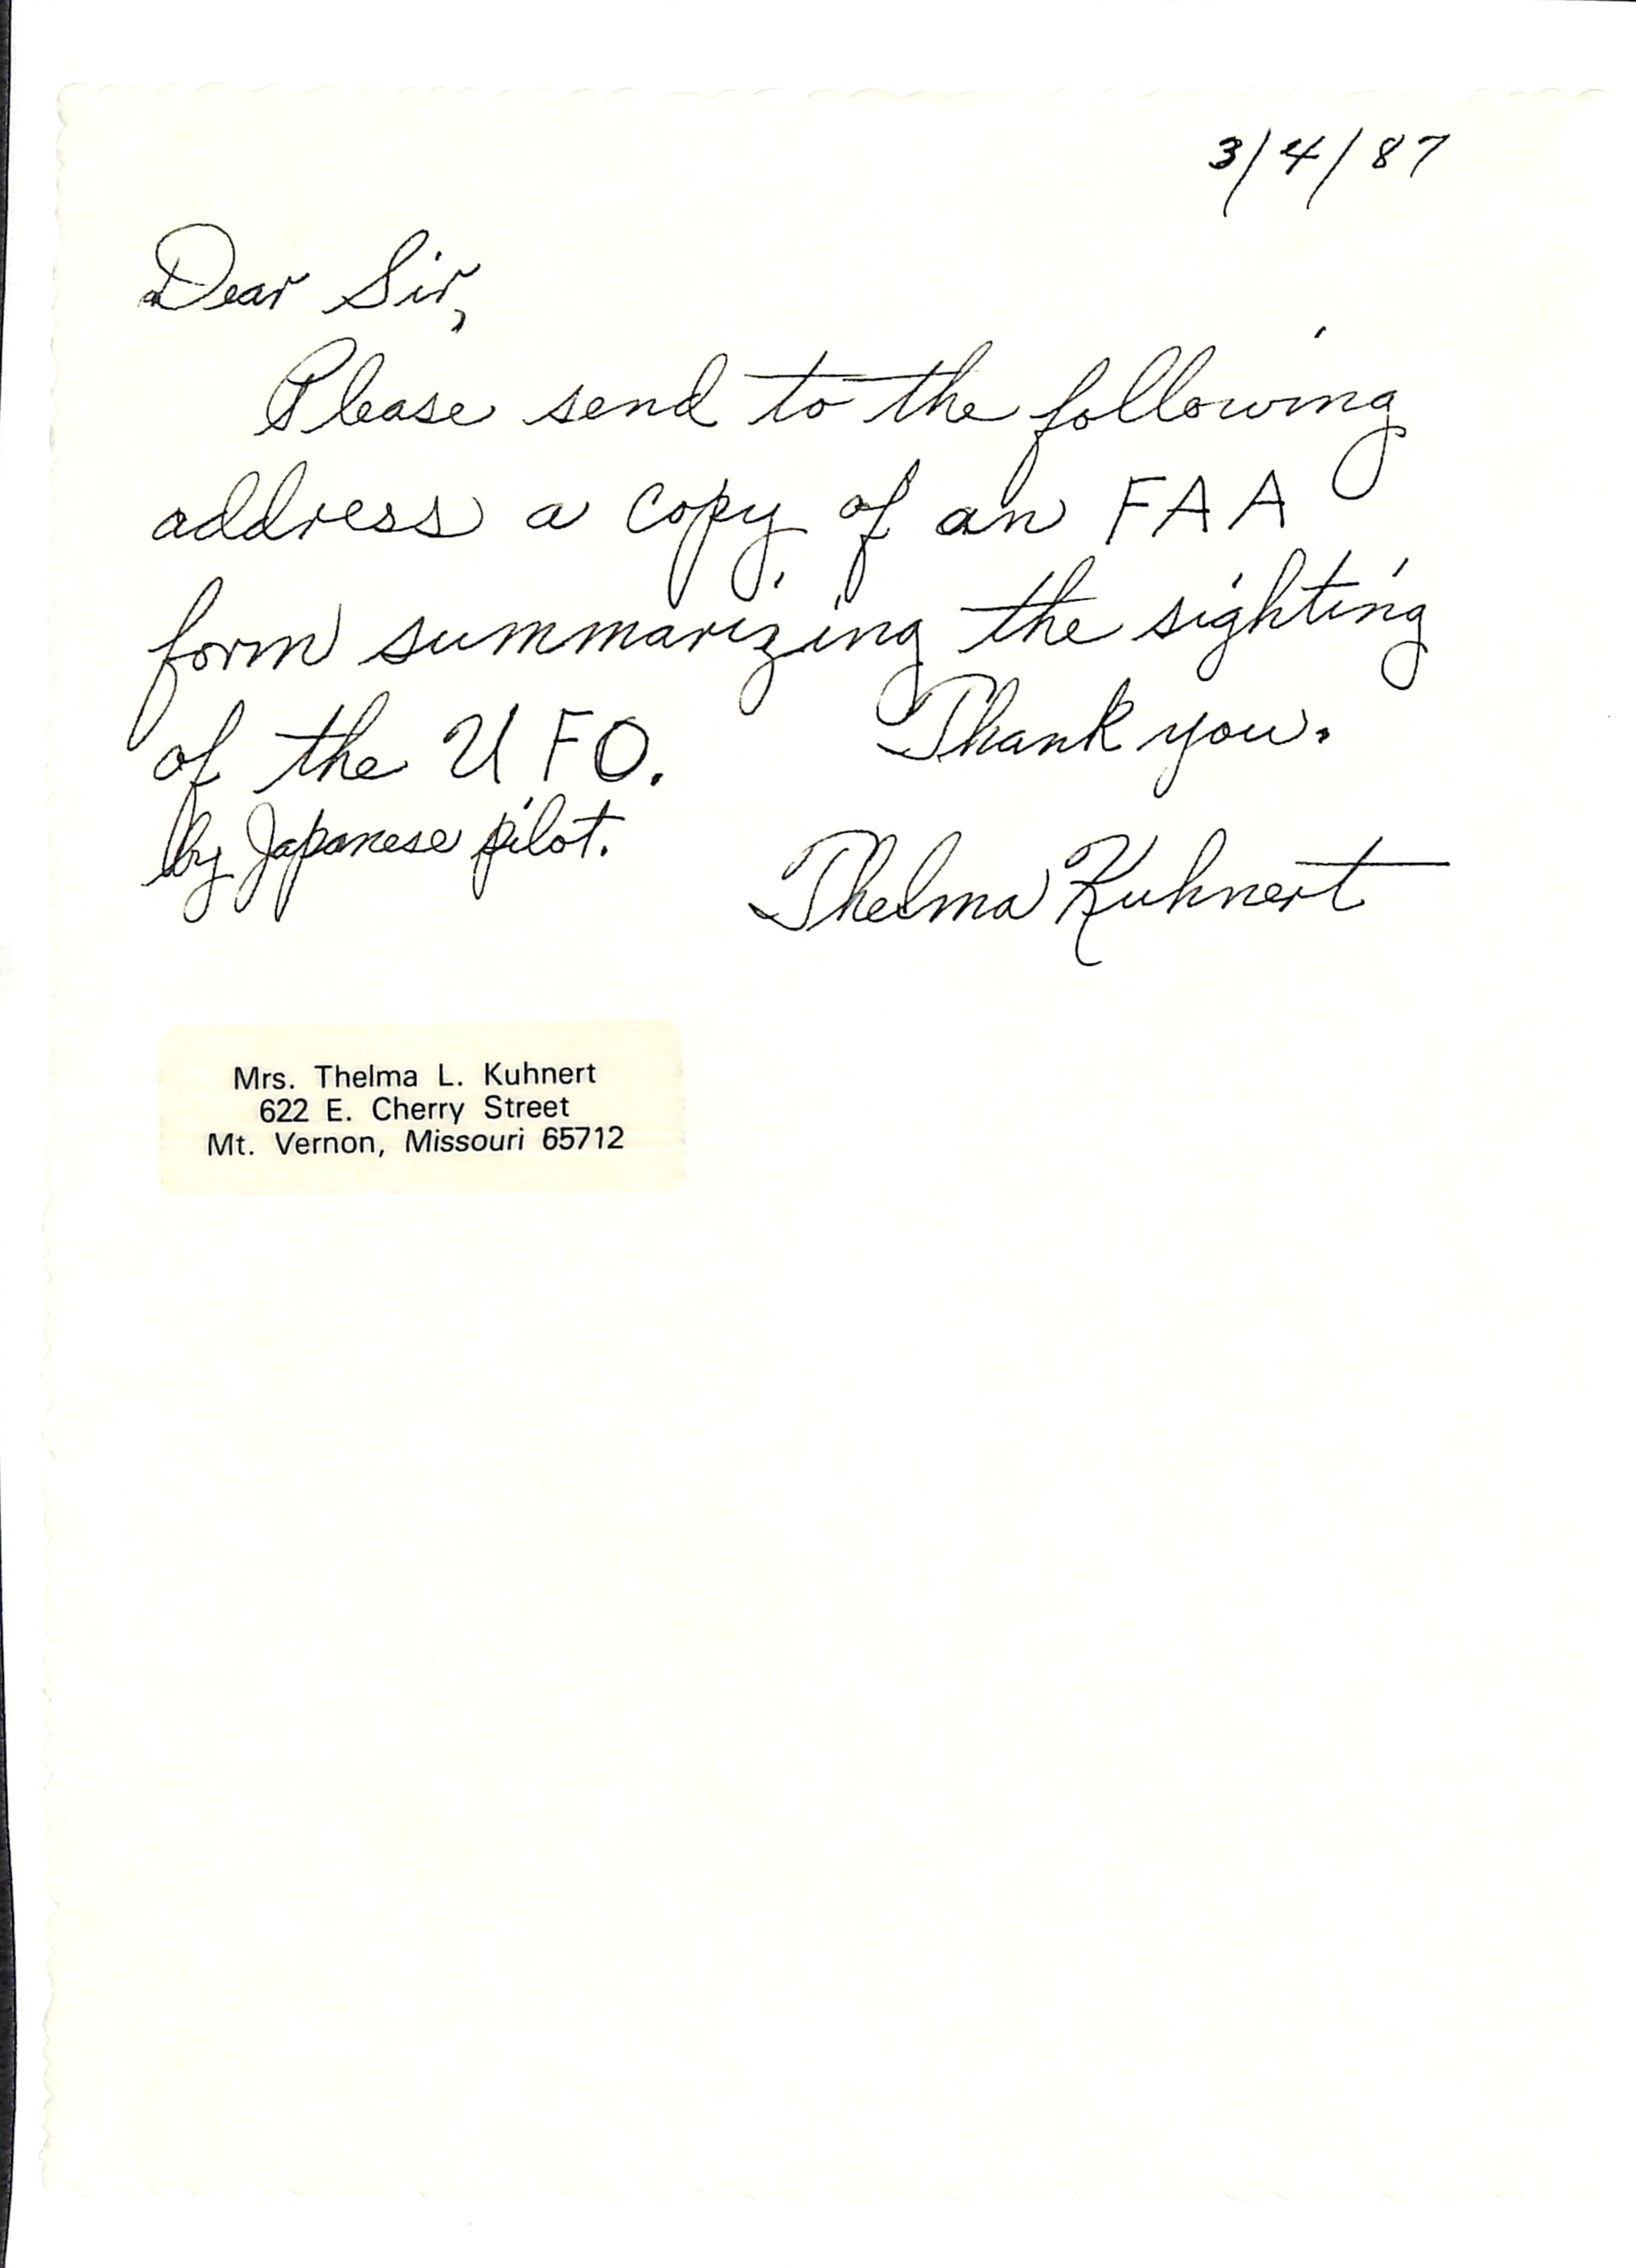 3/4/87
Dear Sir,
Please send to the following
address a copy of an FAA
form summarizing the sighting
of the UFO. Thank you.
by Japanese pilot.
Thelma Kuhnert
Mrs. Thelma L. Kuhnert
622 E. Cherry Street
Mt. Vernon, Missouri 65712